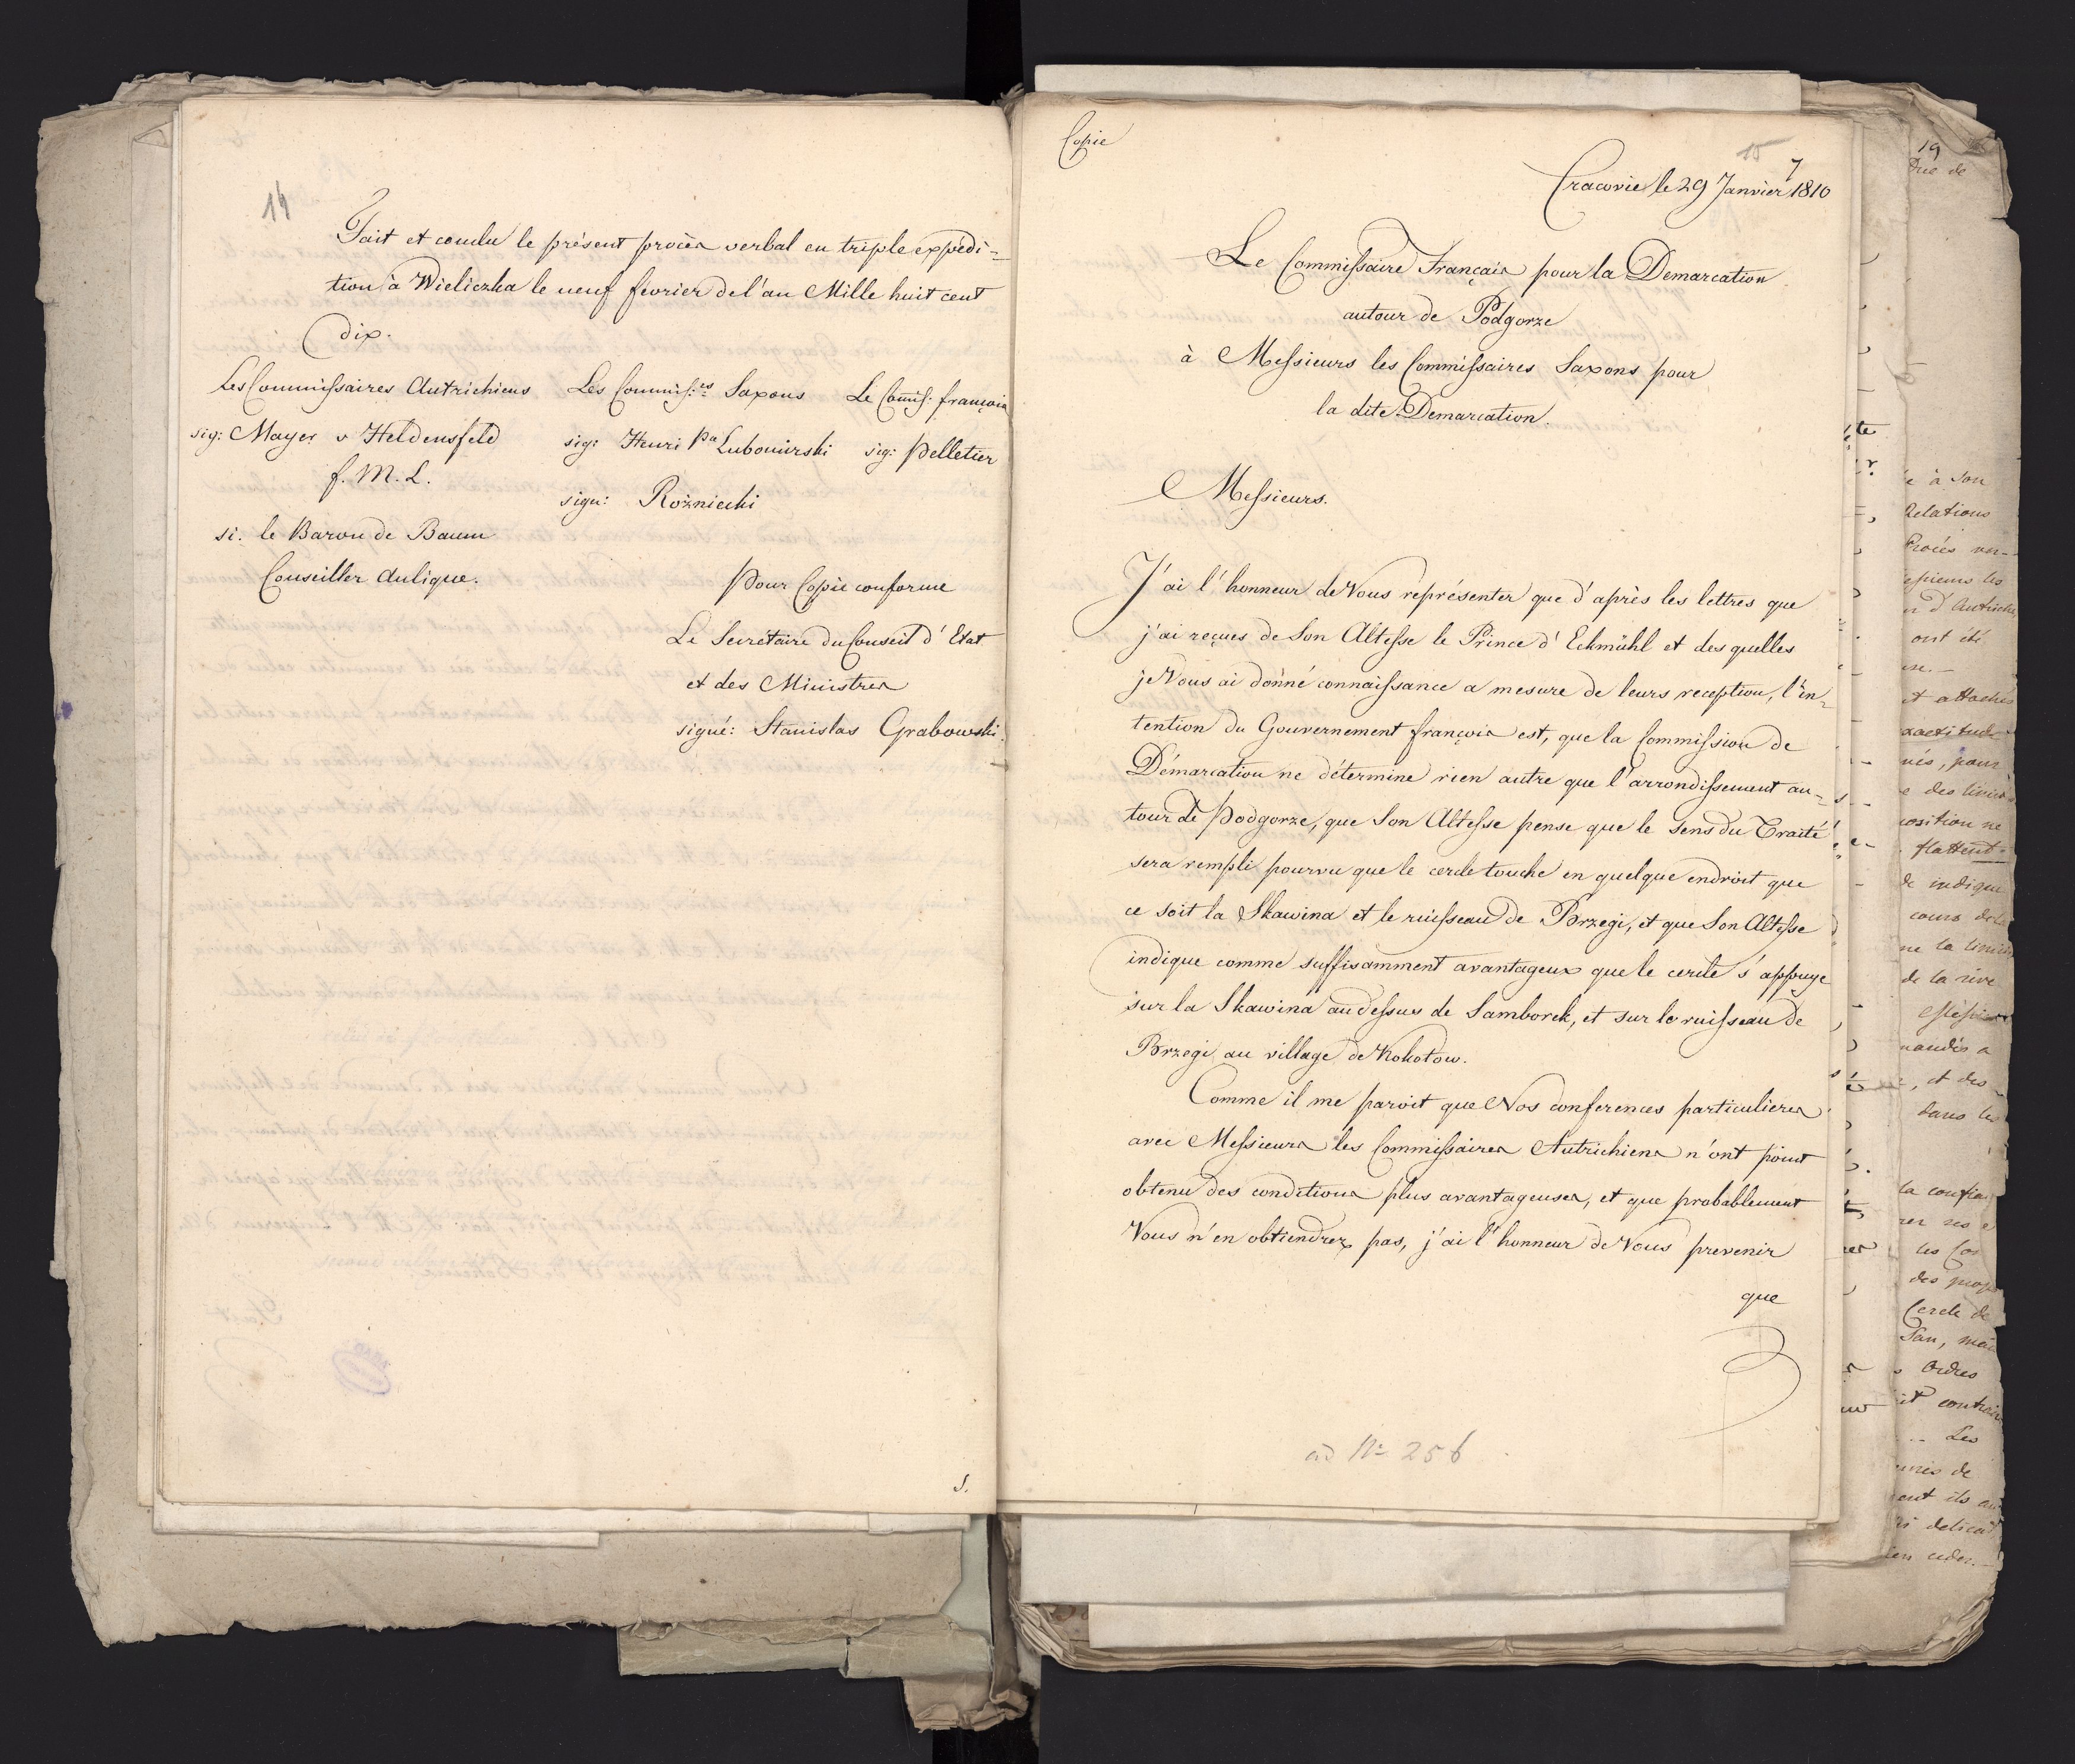 14
Fait et conclu le présent procès verbal en triple expédi=
tion à Wieliczka le neuf fevrier de l'an Mille huit cent
dix.
Les Commissaires Autrichiens Les Commiss:es Saxons Le Comis: françois
sig: Mayer v Heldensfeld sig: Henri Pce Lubomirski sig: Pelletier
f. M. L.
sign: Rożniecki
si. le Baron de Baum
Conseiller Aulique.
Pour Copie conforme
Le Secrétaire du Conseil d'Etat
et des Ministres
signé: Stanislas Grabowski.
5.
Copie
15
7
Cracovie le 29 Janvier 1810
Le Commissaire Français pour la Demarcation
autour de Podgorze
à Messieurs les Commissaires Saxons pour
la dite Demarcation.
Messieurs.
J'ai l'honneur de Vous représenter que d'après les lettres que
j'ai reçues de Son Altesse le Prince d'Eckmühl et des quelles
je Vous ai donné connaissance a mesure de leurs reception, l'in=
tention du Gouvernement françois est, que la Commission de
Démarcation ne détermine rien autre que l'arrondissement au=
tour de Podgorze, que Son Altesse pense que le sens du Traité
sera rempli pourvu que le cercle touche en quelque endroit que
ce soit la Skawina et le ruisseau de Brzegi, et que Son Altesse
indique comme suffisamment avantageux que le cercle s'appuye
sur la Skawina au dessus de Samborek, et sur le ruisseau de
Brzegi au village de Kokotow.
Comme il me paroit que Nos conferences particulieres
avec Messieurs les Commissaires Autrichiens n'ont point
obtenu des conditions plus avantageuses, et que probablement
Vous n'en obtiendrez pas, j'ai l'honneur de Vous prevenir
que
ad No 256
19
à Son
Relations
ont été
et attachés
exactitude
, pour
position ne
flattent
de indique
cours de la
de la rive
, et des
dans les
Cercle de
Ordres
Les